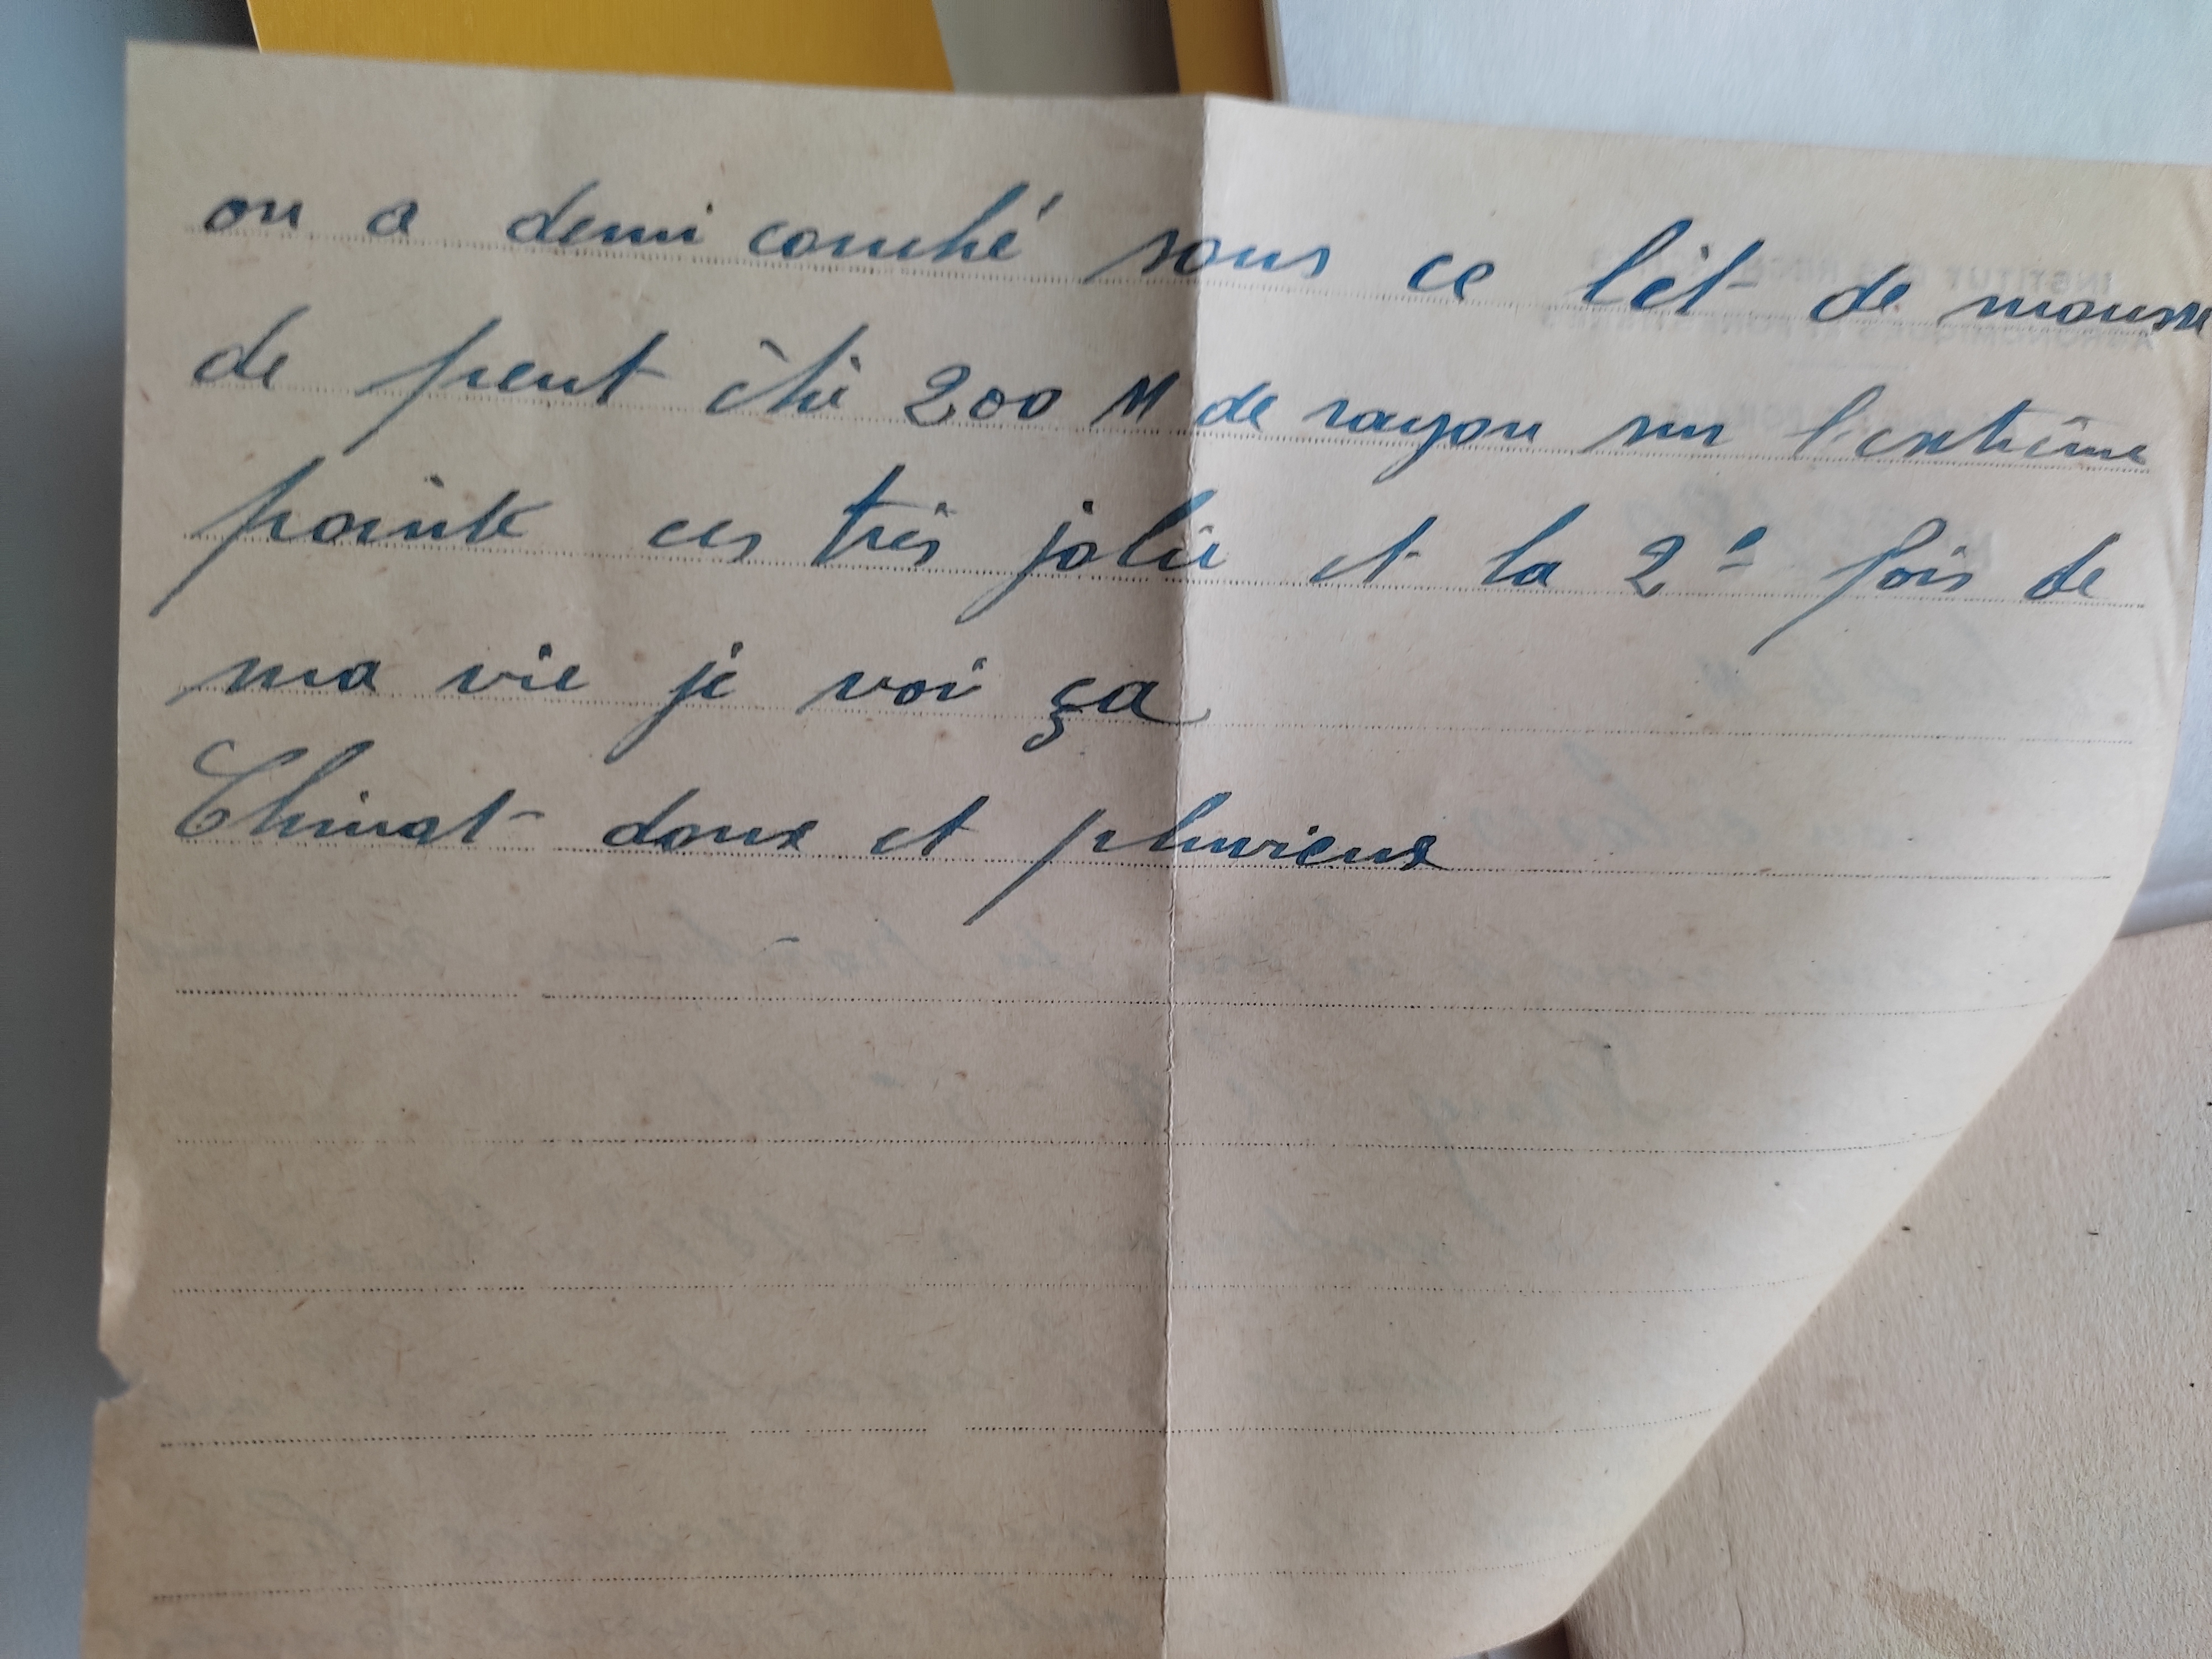 ou a demi couché sous ce lit de mousse
de peut être 200 M de rayon sur l'extrème
pointe ces très jolie et la 2e fois de
ma vie je voi ça
Climat doux et pluvieux